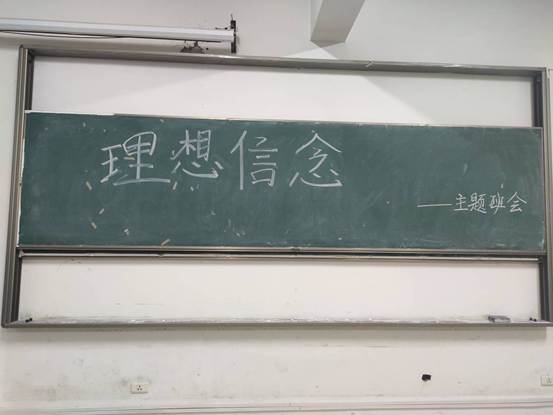 理想信念
——主题班会